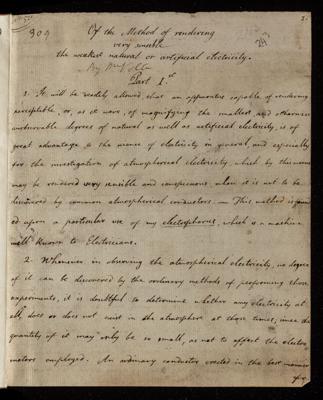 309
Of the Method of rendering
very sensible
the weakest natural or artificial electricity.
Part I.st
1. It will be readily allowed, that an apparatus capable of rendering
perceptible, or, as it were, of magnifying the smallest and otherwise
unobservable degrees of natural as well as artificial electricity, is of
great advantage to the science of electricity in general, and especially
for the investigation of atmospherical electricity which by this means
may be rendered very sensible and conspicuous, when it is not to be
discovered by common atmospherical conductors. — This method is found
ed upon a particular use of my electrophorus, which is a machine
well known to Electricians.
2. Whenever in observing the atmospherical electricity, no degree
of it can be discovered by the ordinary methods of performing those
experiments, it is doubtful to determine whether any electricity at
all, does or does not exist in the atmosphere at those times, since the
quantity of it may only be so small, as not to affect the electro
meters employed. An ordinary conductor erected in the best manner